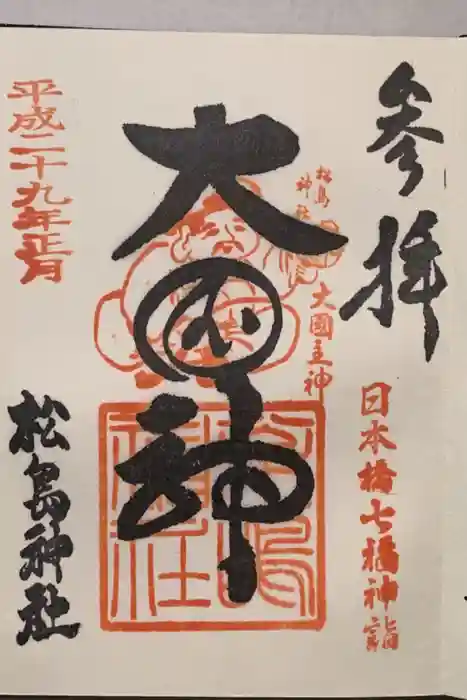 参拝
日本橋七福神詣
松島
神社
大國主神
大国神
松嶋
神社
平成二十九年正月
松島神社